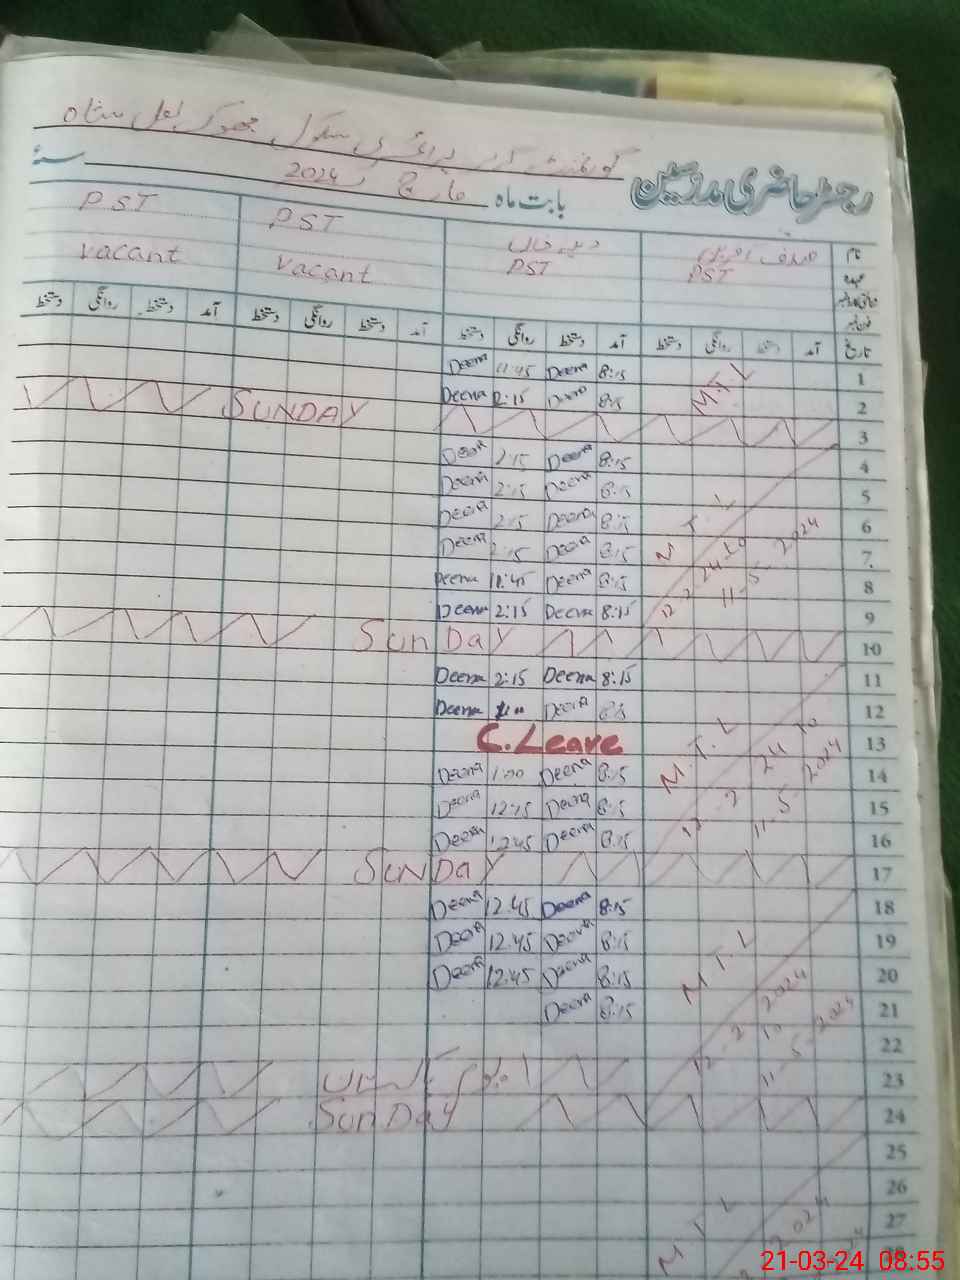 گورنمنٹ گرلز پرائمری سکول جھوک لعل شاہ
رجسٹر حاضری مدرسین بابت ماہ مارچ 2024 سنہ
نام دین خان PST PST
عہدہ PST PST vacant vacant
تاریخ آمد دستخط روانگی دستخط آمد دستخط روانگی دستخط آمد دستخط روانگی دستخط آمد دستخط روانگی دستخط
1 8:15 Deena 11:45 Deena
M.T.L
2 8:15 2:15 Deena
3 SUNDAY
4 8:15 Deena 2:15 Deena
5 8:15 Deena 2:15 Deena
6 8:15 Deena 2:15 Deena
M.T.L
7 8:15 Deena 2:15 Deena
12-2-24 To 11-5-2024
8 8:15 Deena 11:45 Deena
9 8:15 Deena 2:15 Deena
10 SunDay
11 8:15 Deena 2:15 Deena
12 Deena Deena
13 C.Leave
M.T.L
14 8:15 Deena 1:00 Deena
12-2-24 To 11-5-2024
15 8:15 Deena 12:15 Deena
16 8:15 Deena 12:45 Deena
17 SunDay
18 8:15 Deena 12:45 Deena
19 8:15 Deena 12:45 Deena
20 8:15 Deena 12:45 Deena
M T L
21 8:15 Deena
12-2-2024 To 11-5-2024
22
23
24 SunDay
25
26
27
M T L
2024
28
21-03-24 08:55